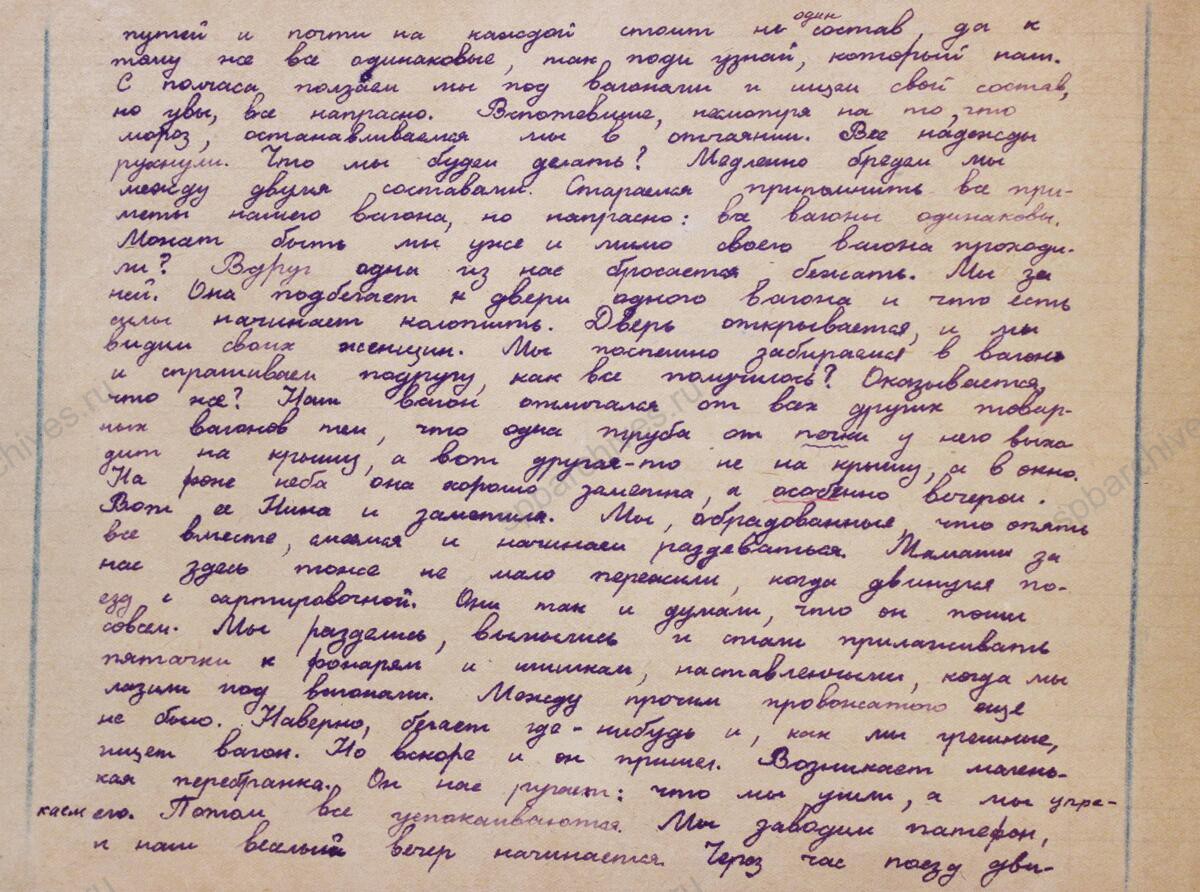 путей и почти на каждой стоит не один состав, да к
тому же все одинаковые, так поди узнай, который наш.
С полчаса ползаем мы под вагонами и ищем свой состав,
но увы, все напрасно. Вспотевшие, несмотря на то, что
мороз, останавливаемся мы в отчаянии. Все надежды
рухнули. Что мы будем делать? Медленно бредем мы
между двумя составами. Стараемся припомнить все при-
меты нашего вагона, но напрасно: все вагоны одинаковы.
Может быть мы уже и мимо своего вагона проходи-
ли? Вдруг одна из нас бросается бежать. Мы за
ней. Она подбегает к двери одного вагона и что есть
силы начинает колотить. Дверь открывается, и мы
видим своих женщин. Мы поспешно забираемся в вагон
и спрашиваем подругу, как все получилось? Оказывается,
что же? Наш вагон отличался от всех других товар-
ных вагонов тем, что одна труба от печки у него выхо
дит на крышу, а вот другая-то не на крышу, а в окно.
На фоне неба она хорошо заметна, а особенно вечером.
Вот ее Нина и заметила. Мы, обрадованные, что опять
все вместе, смеемся и начинаем раздеваться. Мамаши за
нас здесь тоже не мало пережили, когда двинулся по-
езд с сартировочной. Они так и думали, что он пошел
совсем. Мы разделись, вымылись и стали прилаживать
пятачки к фонарям и шишкам, наставленными, когда мы
лазили под вагонами. Между прочим провожатого еще
не было. Наверно, бегает где-нибудь и, как мы грешные,
ищет вагон. Но вскоре и он пришел. Возникает малень-
кая перебранка. Он нас ругает: что мы ушли, а мы упре-
каем его. Потом все успокаиваются. Мы заводим патефон,
и наш веселый вечер начинается. Через час поезд дви-
spbarchives.ru
spbarchives.ru